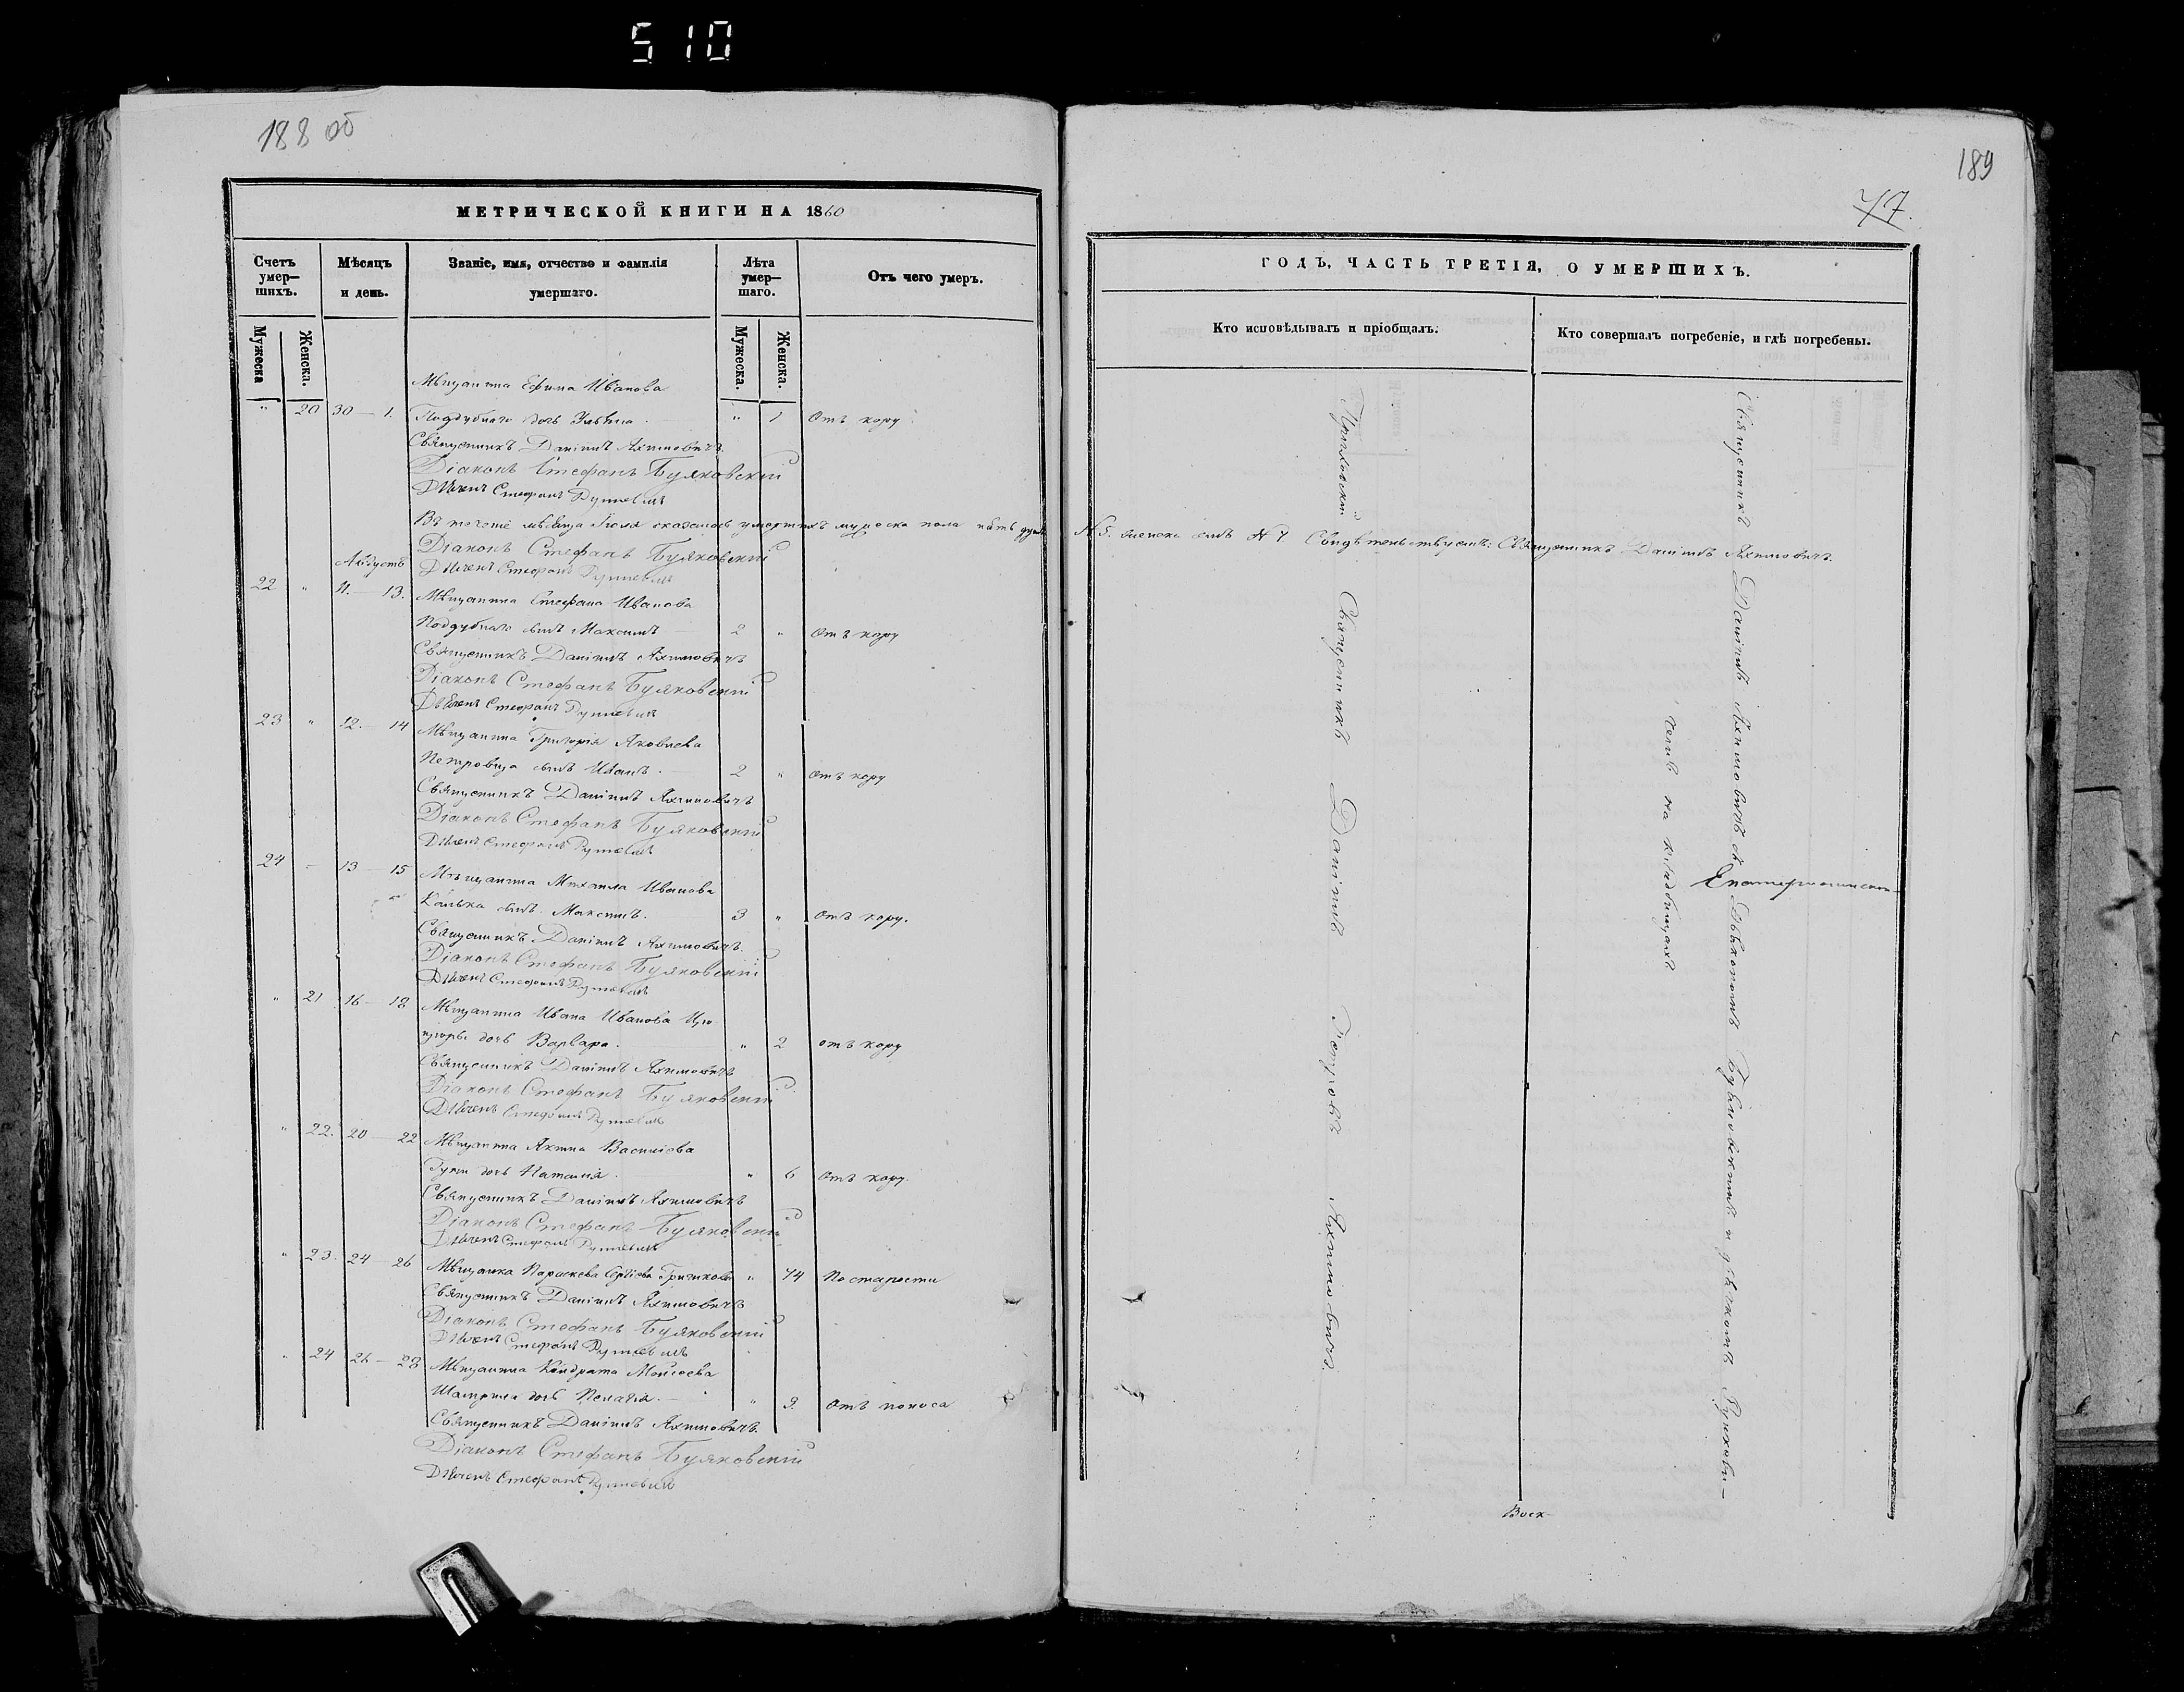 510
188 об
МЕТРИЧЕСКОЙ КНИГИ НА 1860
Счетъ умер—шихъ.
Мѣсяцъ и день.
Званіе, имя, отчество и фамилія умершаго.
Лѣта умер—шаго.
Отъ чего умеръ.
Мужеска
Женска.
Мужеска.
Женска.
Мѣщанина Ефима Иванова
" 20 30 — 1. Поддубнаго дочь " 1 Отъ кору
Священникъ Даніилъ Яхимовичъ
Діаконъ Стефанъ Буяковскій
Дьячекъ Стефанъ
Въ теченіе мѣсяца Іюля оказалось умершихъ мужеска пола пять душъ
Діаконъ Стефанъ Буяковскій
Августъ Дьячекъ Стефанъ
22 " 11. — 13. Мѣщанина Стефана Иванова
Поддубнаго сынъ Максимъ 2 " Отъ кору
Священникъ Даніилъ Яхимовичъ
Діаконъ Стефанъ Буяковскій
Дьячекъ Стефанъ
23 " 12. — 14 Мѣщанина Григорія Яковлева
Петровца сынъ Иванъ. 2 " Отъ кору
Священникъ Даніилъ Яхимовичъ
Діаконъ Стефанъ Буяковскій
Дьячекъ Стефанъ
24 — 13 — 15 Мѣщанина Михаила Иванова
сынъ Максимъ. 3 " Отъ кору.
Священникъ Даніилъ Яхимовичъ.
Діаконъ Стефанъ Буяковскій
Дьячекъ Стефанъ
" 21 16 — 18 Мѣщанина Ивана Иванова Цю-
цюры дочь Варвара. " 2 отъ кору
Священникъ Даніилъ Яхимовичъ
Діаконъ Стефанъ Буяковскій
Дьячекъ Стефанъ
" 22. 20 — 22 Мѣщанина Якима Василіева
дочь Наталія. " 6 Отъ кору.
Священникъ Даніилъ Яхимовичъ
Діаконъ Стефанъ Буяковскій
Дьячекъ Стефанъ
" 23. 24 — 26 Мѣщанка Параскева " 74 По старости
Священникъ Даніилъ Яхимовичъ
Діаконъ Стефанъ Буяковскій
Дьячекъ Стефанъ
" 24 26 — 28 Мѣщанина Кондрата Моисеева
дочь Пелагія. " 9. Отъ поноса
Священникъ Даніилъ Яхимовичъ.
Діаконъ Стефанъ Буяковскій
Дьячекъ Стефанъ
189
47.
ГОДЪ, ЧАСТЬ ТРЕТІЯ, О УМЕРШИХЪ.
Кто исповѣдывалъ и пріобщалъ.
Кто совершалъ погребеніе, и гдѣ погребены.
№ 5. женска семь № 7 Свидѣтельствуетъ: Священникъ Даніилъ Яхимовичъ.
Приходскій Священникъ Даніилъ Яхимовичъ.
Священникъ Даніилъ Яхимовичъ съ Діакономъ Буяковскимъ и дьячкомъ
Екатерининском
на кладбищахъ
Воск-